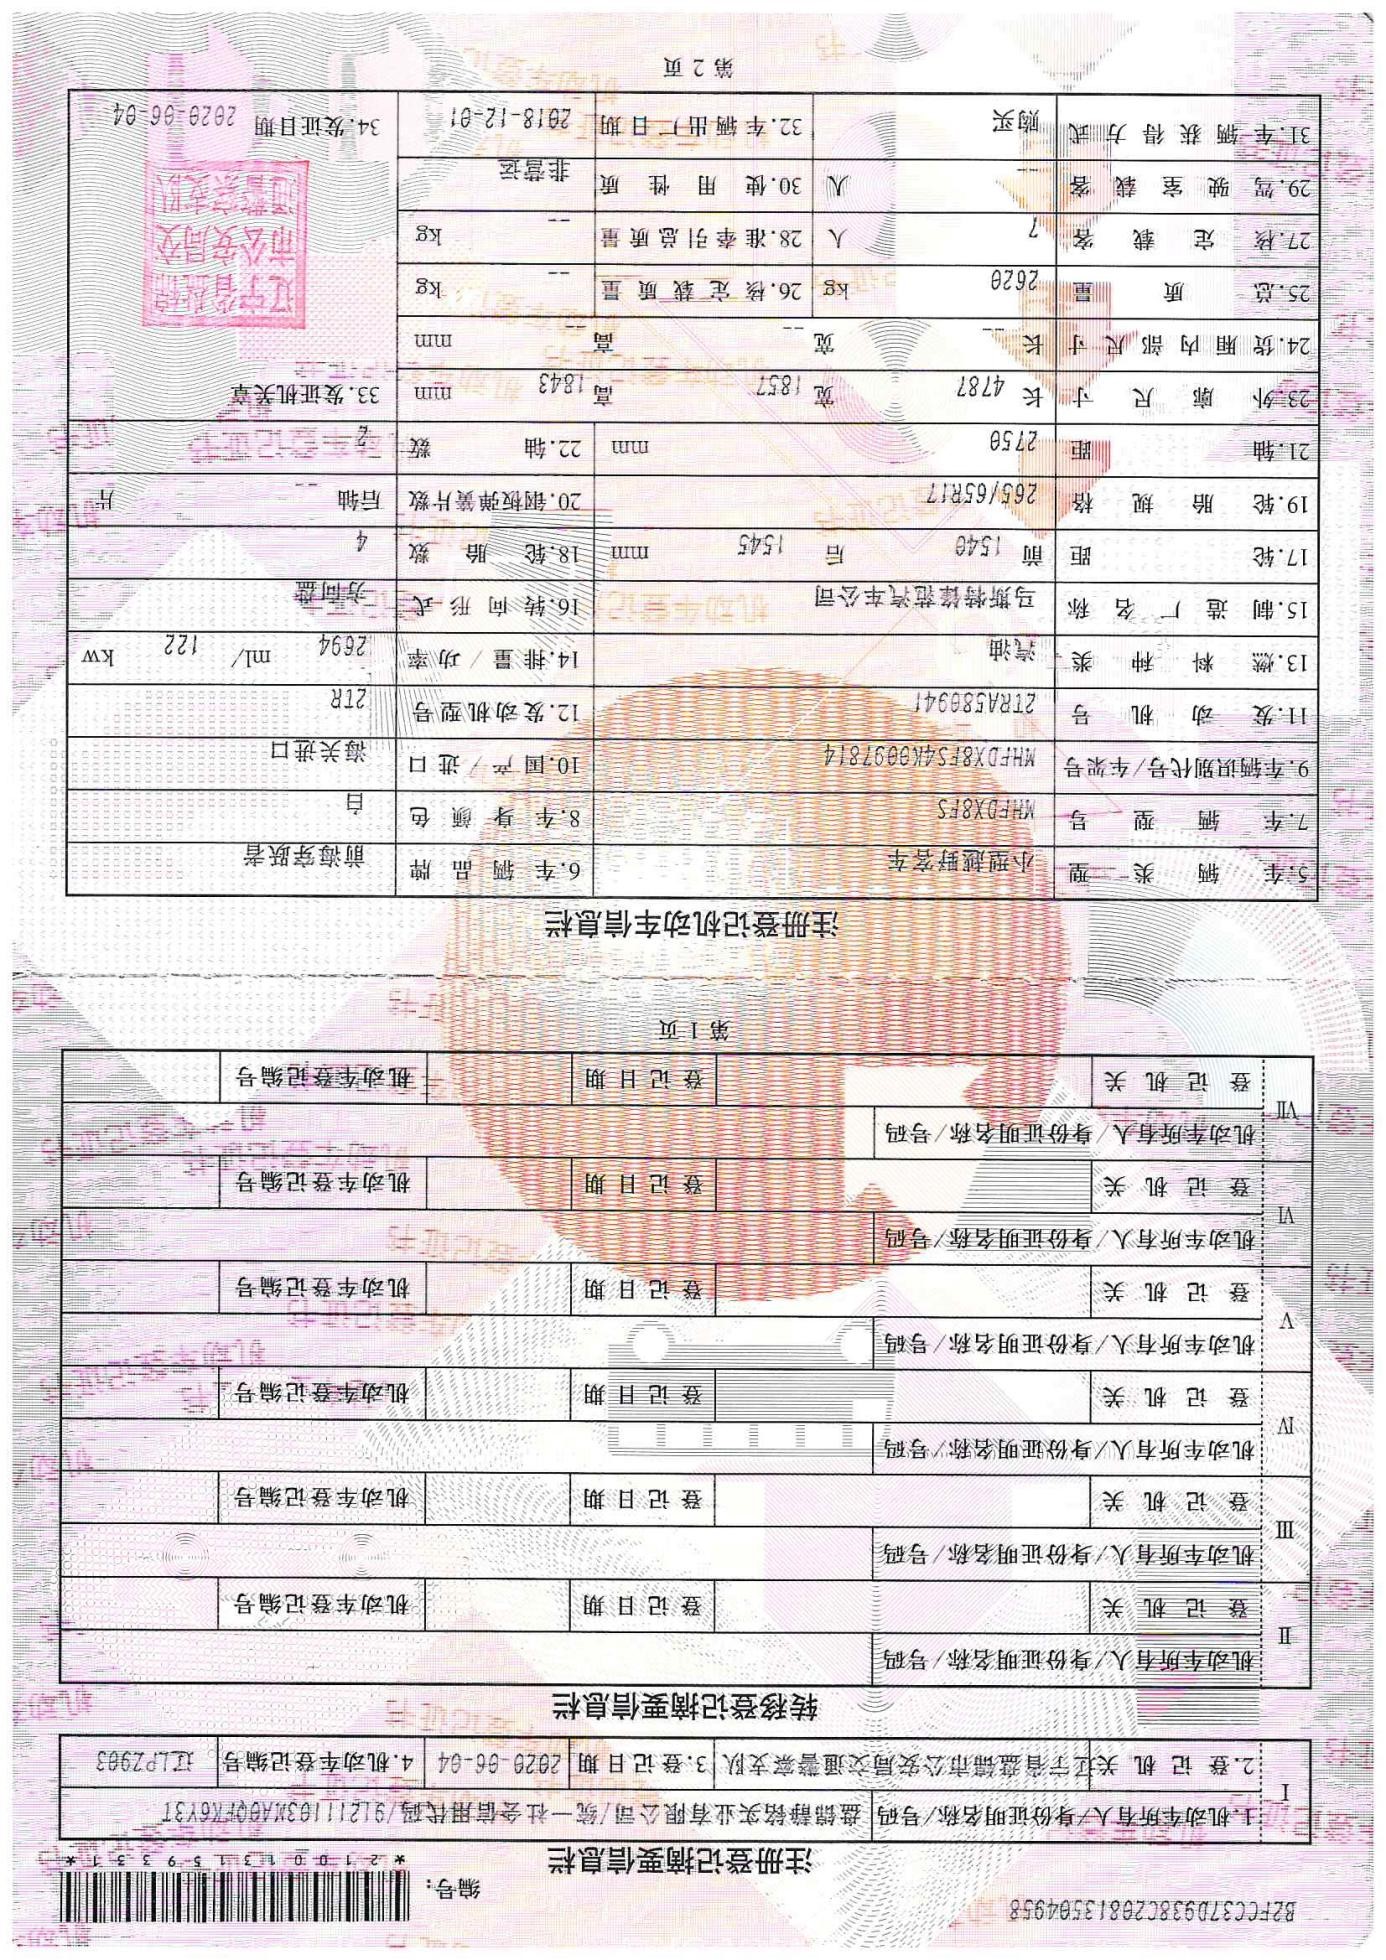 B2FCC37D938C20813504958
编号:
*210013159331*
注册登记摘要信息栏
I
1.机动车所有人/身份证明名称/号码 盘锦静铭实业有限公司/统一社会信用代码/91211103MA0QFK6Y3T
2.登记机关 辽宁省盘锦市公安局交通警察支队 3.登记日期 2020-06-04 4.机动车登记编号 辽LPZ903
转移登记摘要信息栏
II
机动车所有人/身份证明名称/号码
登记机关 登记日期 机动车登记编号
III
机动车所有人/身份证明名称/号码
登记机关 登记日期 机动车登记编号
IV
机动车所有人/身份证明名称/号码
登记机关 登记日期 机动车登记编号
V
机动车所有人/身份证明名称/号码
登记机关 登记日期 机动车登记编号
VI
机动车所有人/身份证明名称/号码
登记机关 登记日期 机动车登记编号
VII
机动车所有人/身份证明名称/号码
登记机关 登记日期 机动车登记编号
第1页
注册登记机动车信息栏
5.车辆类型 小型越野客车 6.车辆品牌 前海穿跃者
7.车辆型号 MHFDX8FS 8.车身颜色 白
9.车辆识别代号/车架号 MHFDX8FS4K0097814 10.国产/进口 海关进口
11.发动机号 2TRA580941 12.发动机型号 2TR
13.燃料种类 汽油 14.排量/功率 2694 ml/ 122 kw
15.制造厂名称 马斯特锋范汽车公司 16.转向形式 方向盘
17.轮距 前 1540 后 1545 mm 18.轮胎数 4
19.轮胎规格 265/65R17 20.钢板弹簧片数 后轴 -- 片
21.轴距 2750 mm 22.轴数 2
23.外廓尺寸 长 4787 宽 1857 高 1843 mm 33.发证机关章
24.货厢内部尺寸 长 -- 宽 -- 高 -- mm
25.总质量 2620 kg 26.核定载质量 -- kg
27.核定载客 7 人 28.准牵引总质量 -- kg
29.驾驶室载客 -- 人 30.使用性质 非营运
31.车辆获得方式 购买 32.车辆出厂日期 2018-12-01 34.发证日期 2020-06-04
辽宁省盘锦
市公安局交
通警察支队
第2页